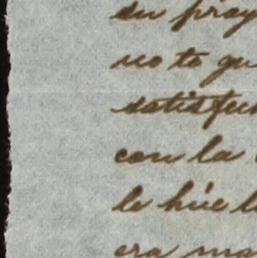 su proy
no te qu
satisfac
con la
le hice l
era ma